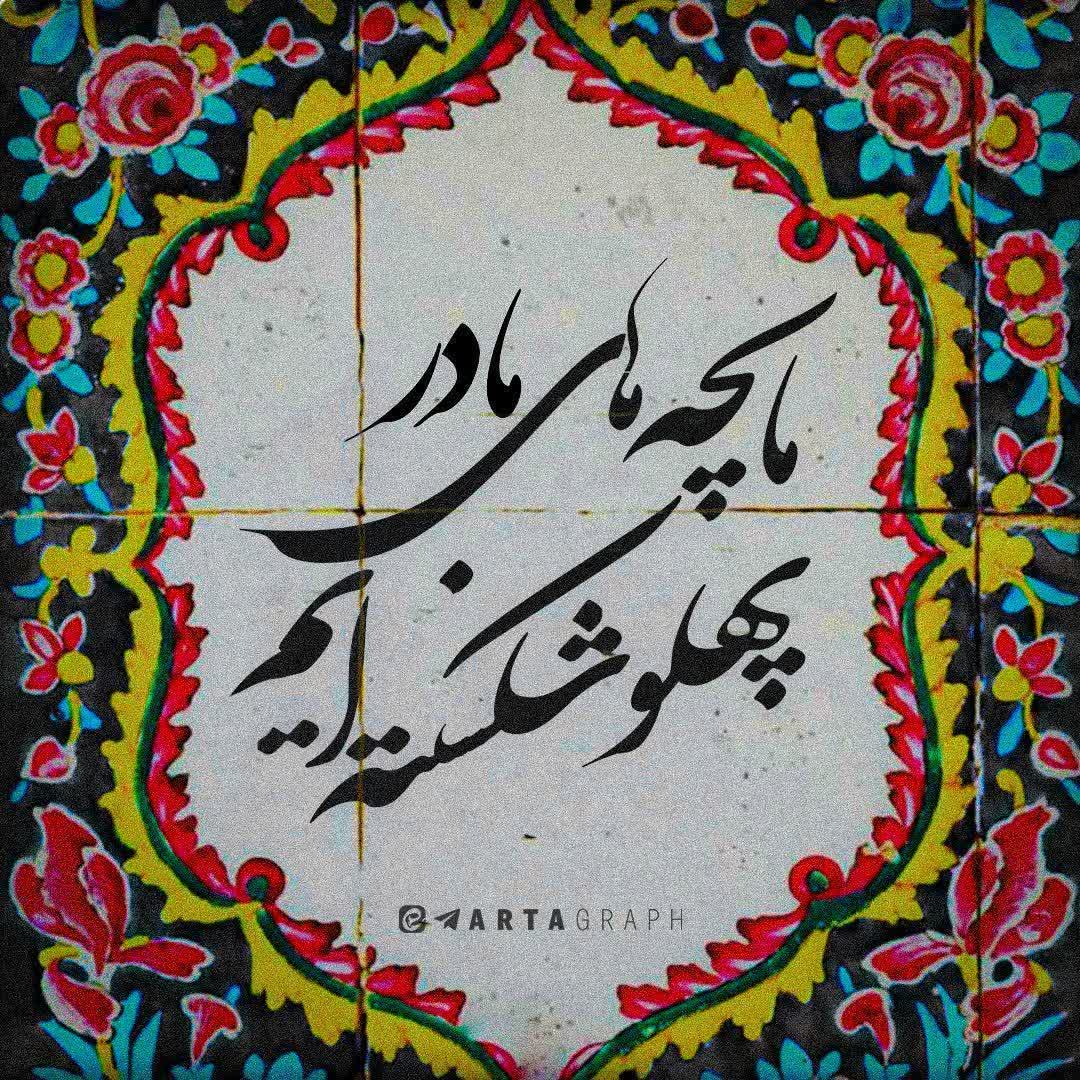 ما بچه های مادر
پهلو شکسته ایم
ARTAGRAPH